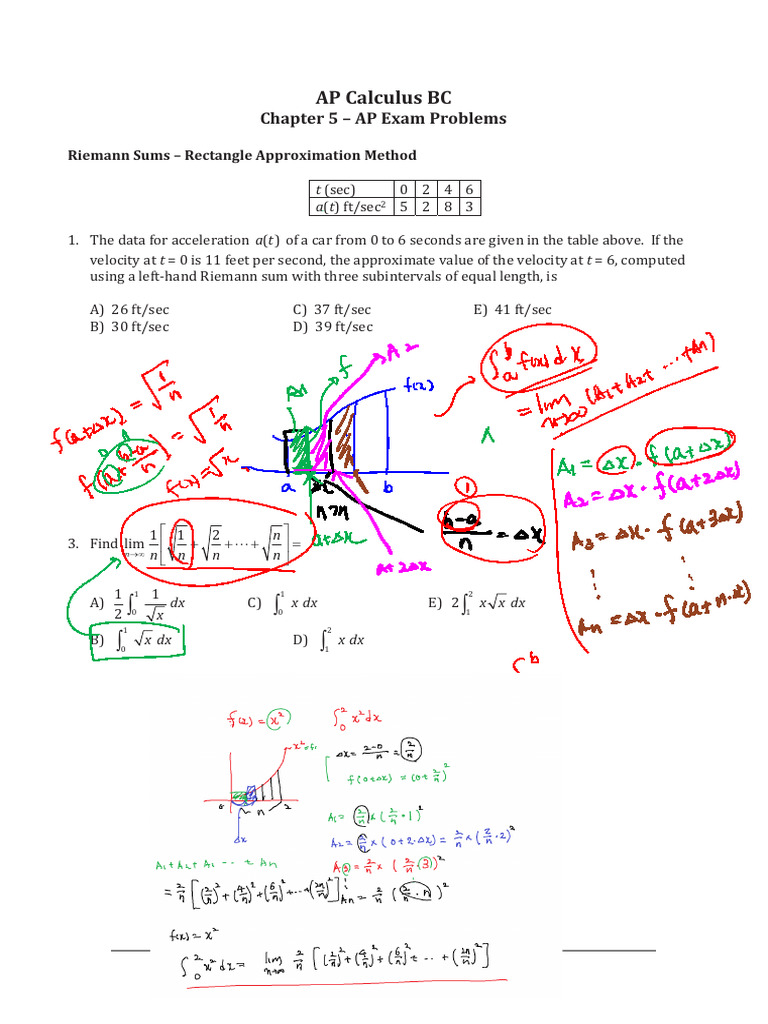 AP Calculus BC
Chapter 5 – AP Exam Problems
Riemann Sums – Rectangle Approximation Method
t (sec) 0 2 4 6
a(t) ft/sec² 5 2 8 3
1. The data for acceleration a(t) of a car from 0 to 6 seconds are given in the table above. If the
velocity at t = 0 is 11 feet per second, the approximate value of the velocity at t = 6, computed
using a left-hand Riemann sum with three subintervals of equal length, is
A) 26 ft/sec C) 37 ft/sec E) 41 ft/sec
B) 30 ft/sec D) 39 ft/sec
A2
f
A1
f(x)
∫_a^b f(x)dx
= lim n→∞ (A1+A2+ ⋯ +An)
f(a+Δx) = √(1/n)
f(a+(b-a)/n) = √(1/n)
f(x)=√x
a Δx b
a+Δx
a+2Δx
1
(b-a)/n = Δx
A1 = Δx · f(a+Δx)
A2 = Δx · f(a+2Δx)
A3 = Δx · f(a+3Δx)
⋮ ⋮
An = Δx · f(a+n·Δx)
3. Find lim n→∞ 1/n [√(1/n) + √(2/n) + ⋯ + √(n/n)] =
A) 1/2 ∫_0^1 1/√x dx C) ∫_0^1 x dx E) 2∫_1^2 x√x dx
B) ∫_0^1 √x dx D) ∫_1^2 x dx
∫ b
f(x) = x² ∫_0^2 x²dx
x²
Δx = (2-0)/n = 2/n
f(0+Δx) = (0+2/n)²
0 n 2
dx
A1 = 2/n × (2/n · 1)²
A2 = 2/n × (0+2·Δx) = 2/n × (2/n · 2)²
A3 = 2/n × (2/n · 3)²
⋮
An = 2/n (2/n · n)²
A1+A2+A1 ⋯ + An
= 2/n [(2/n)² + (4/n)² + (6/n)² + ⋯ + (2n/n)²]
f(x) = x²
∫_0^2 x²dx = lim n→∞ 2/n [(2/n)² + (4/n)² + (6/n)² + ⋯ + (2n/n)²]